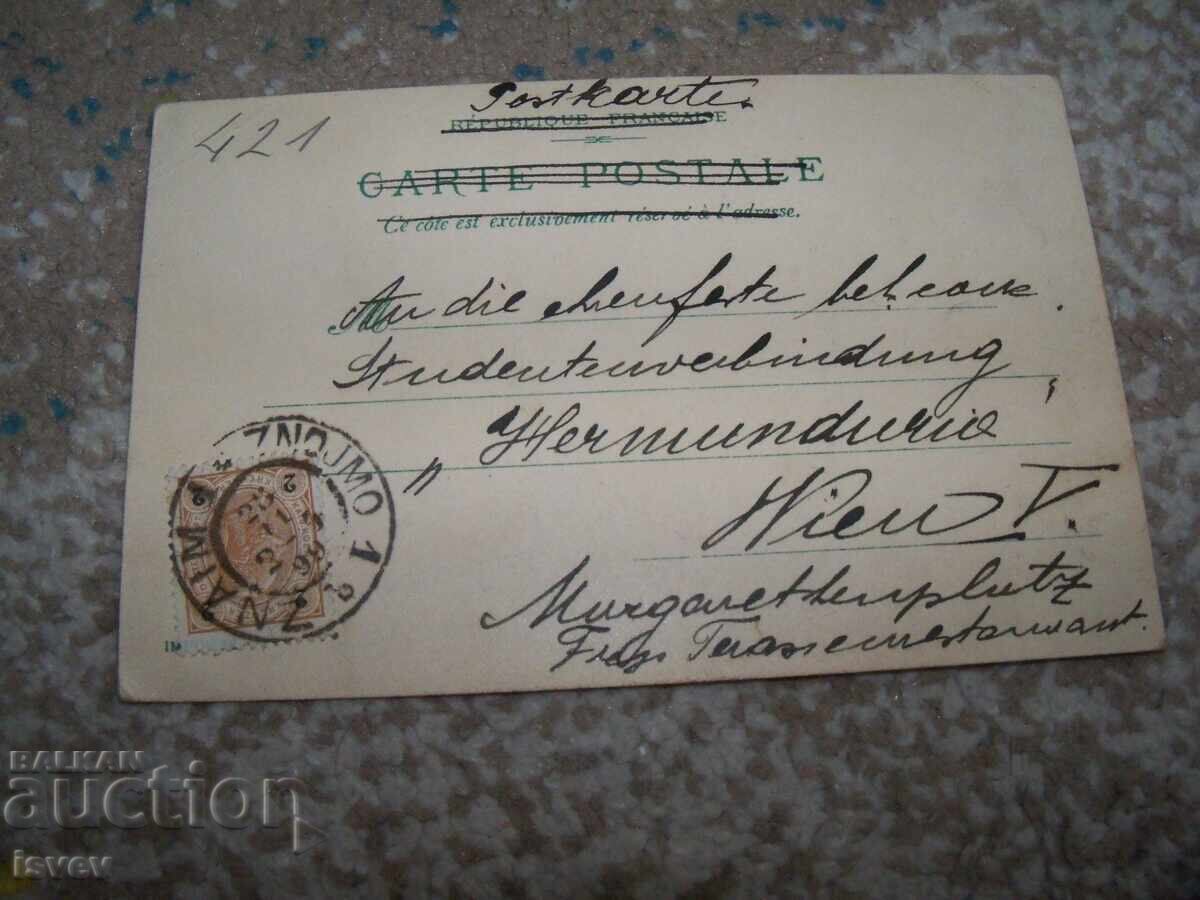 421
Postkarte.
RÉPUBLIQUE FRANÇAISE
CARTE POSTALE
Ce côté est exclusivement réservé à l'adresse.
An die ehrenfeste
Studentenverbindung
„Hermunduria"
Wien V.
Margarethenplatz
Terassenrestaurant.
ZNAIM 1 * ZNOJMO 1
2 2
BALKAN
auction
isvev